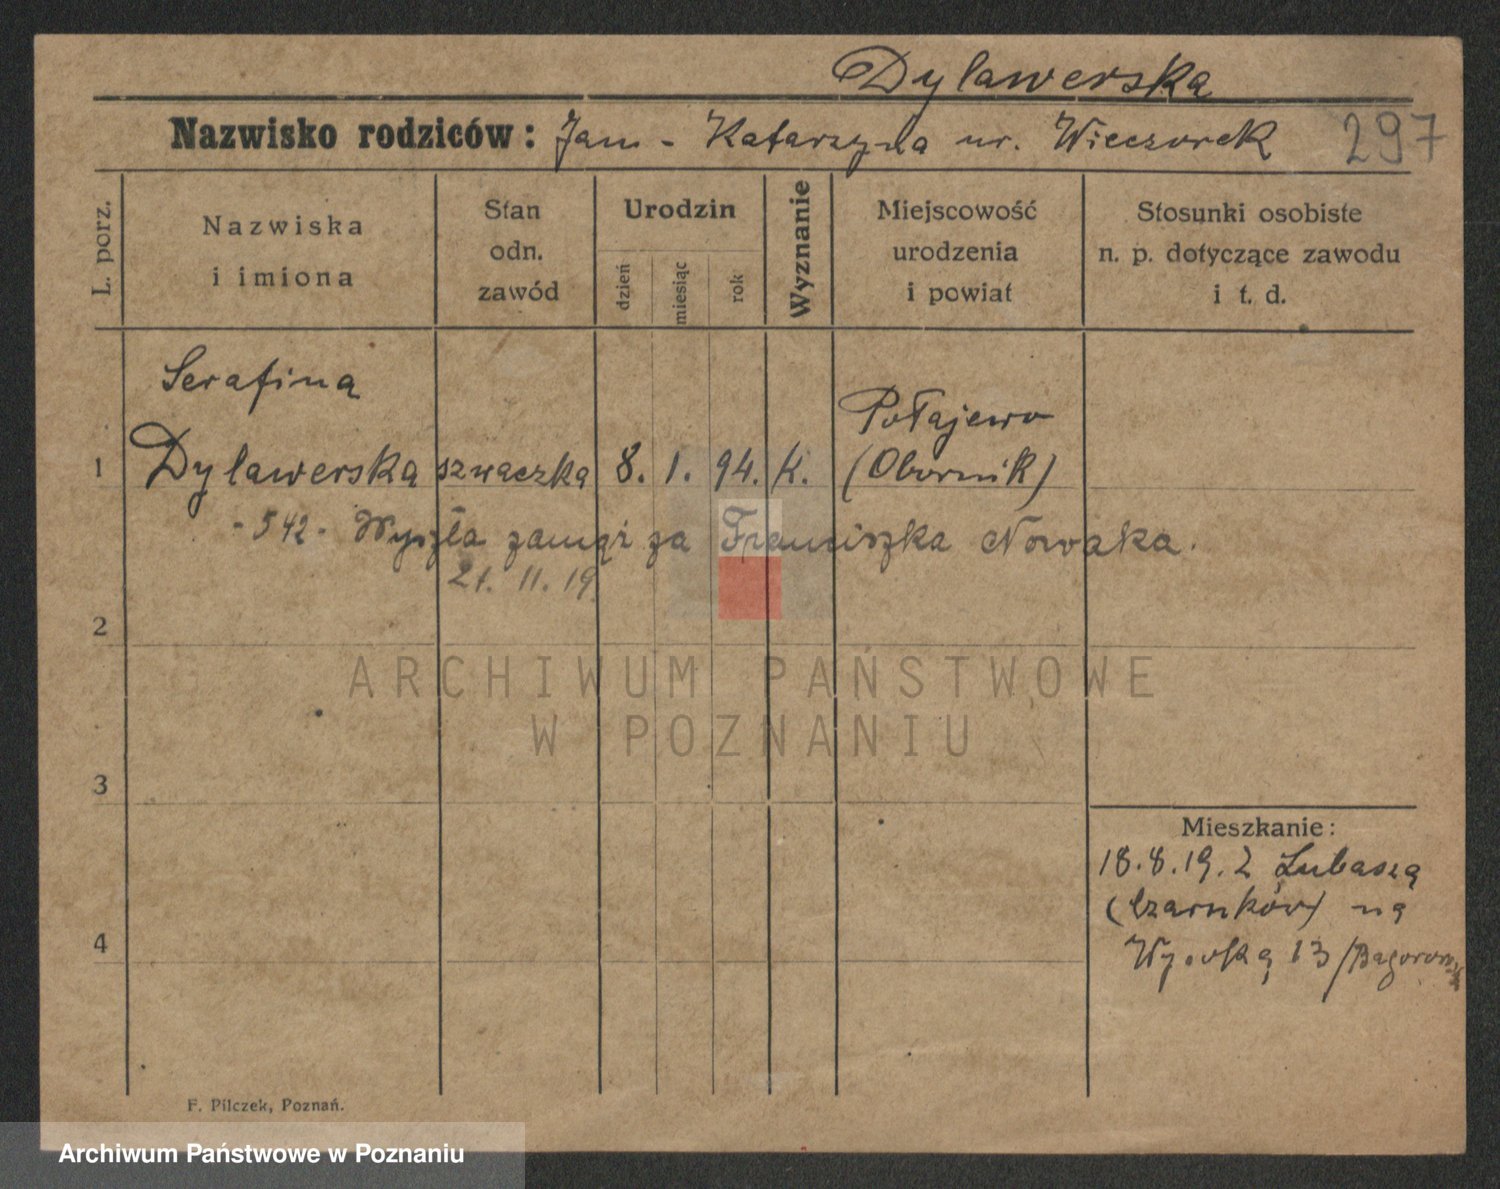 Dylawerska
Nazwisko rodziców: Jan - Katarzyna ur. Wieczorek 297
L. porz.
Nazwiska
i imiona
Stan
odn.
zawód
Urodzin
dzień
miesiąc
rok
Wyznanie
Miejscowość
urodzenia
i powiat
Stosunki osobiste
n. p. dotyczące zawodu
i t. d.
Serafina
1 Dylawerska szwaczka 8. 1. 94. k.
Połajewo
(Obornik)
- 542 - Wyszła zamąż za Franciszka Nowaka.
21. 11. 19
2
ARCHIWUM PAŃSTWOWE
W POZNANIU
3
Mieszkanie:
18.8.19. z Lubasza
(Czarnków) na
4
Wysoką 13 /
F. Pilczek, Poznań.
Archiwum Państwowe w Poznaniu